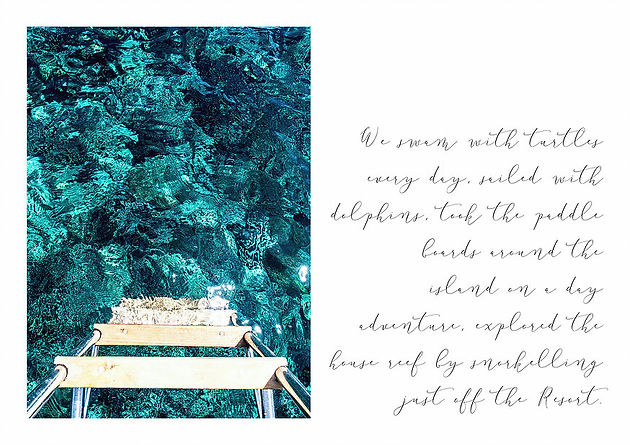 We swam with turtles
every day, sailed with
dolphins, took the paddle
boards around the
island on a day
adventure, explored the
house reef by snorkelling
just off the Resort.